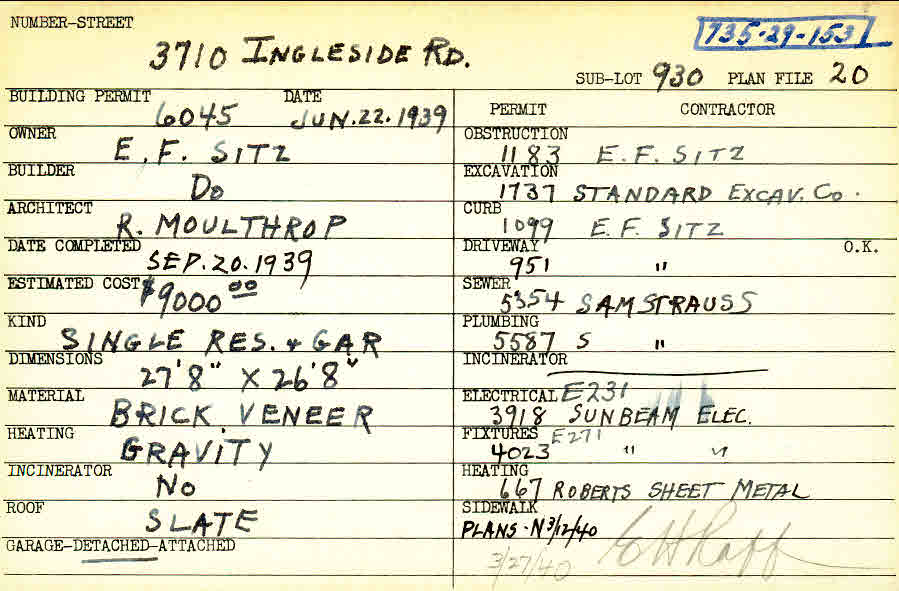 NUMBER-STREET
735-29-153
3710 INGLESIDE RD.
SUB-LOT 930 PLAN FILE 20
BUILDING PERMIT DATE
6045 JUN.22.1939
OWNER
E. F. SITZ
BUILDER
DO
ARCHITECT
R. MOULTHROP
DATE COMPLETED
SEP.20.1939
ESTIMATED COST $9000 00
KIND
SINGLE RES. + GAR
DIMENSIONS
27'8" X 26'8"
MATERIAL
BRICK VENEER
HEATING
GRAVITY
INCINERATOR
NO
ROOF
SLATE
GARAGE-DETACHED-ATTACHED
PERMIT CONTRACTOR
OBSTRUCTION
1183 E. F. SITZ
EXCAVATION
1737 STANDARD EXCAV. CO.
CURB
1099 E. F. SITZ
DRIVEWAY O.K.
951 "
SEWER
5354 SAM STRAUSS
PLUMBING
5587 S "
INCINERATOR
ELECTRICAL E231
3918 SUNBEAM ELEC.
FIXTURES E271
4023 " "
HEATING
667 ROBERTS SHEET METAL
SIDEWALK
PLANS-N 3/12/40
3/27/40